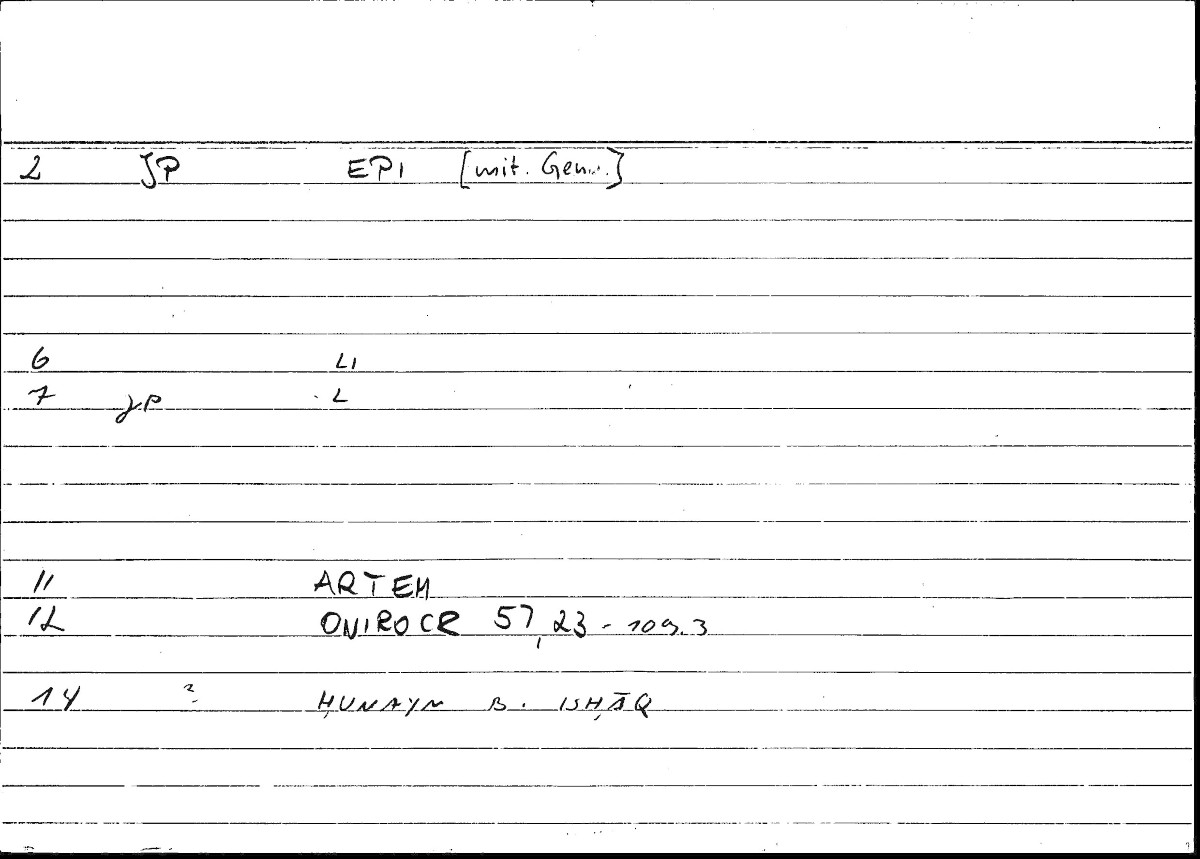 2 JP EPI [mit. Gen..]
6 LI
7 JP L
11 ARTEM
12 ONIROCR 57,23 - 109.3
14 ? ḤUNAYN B. ISḤĀQ